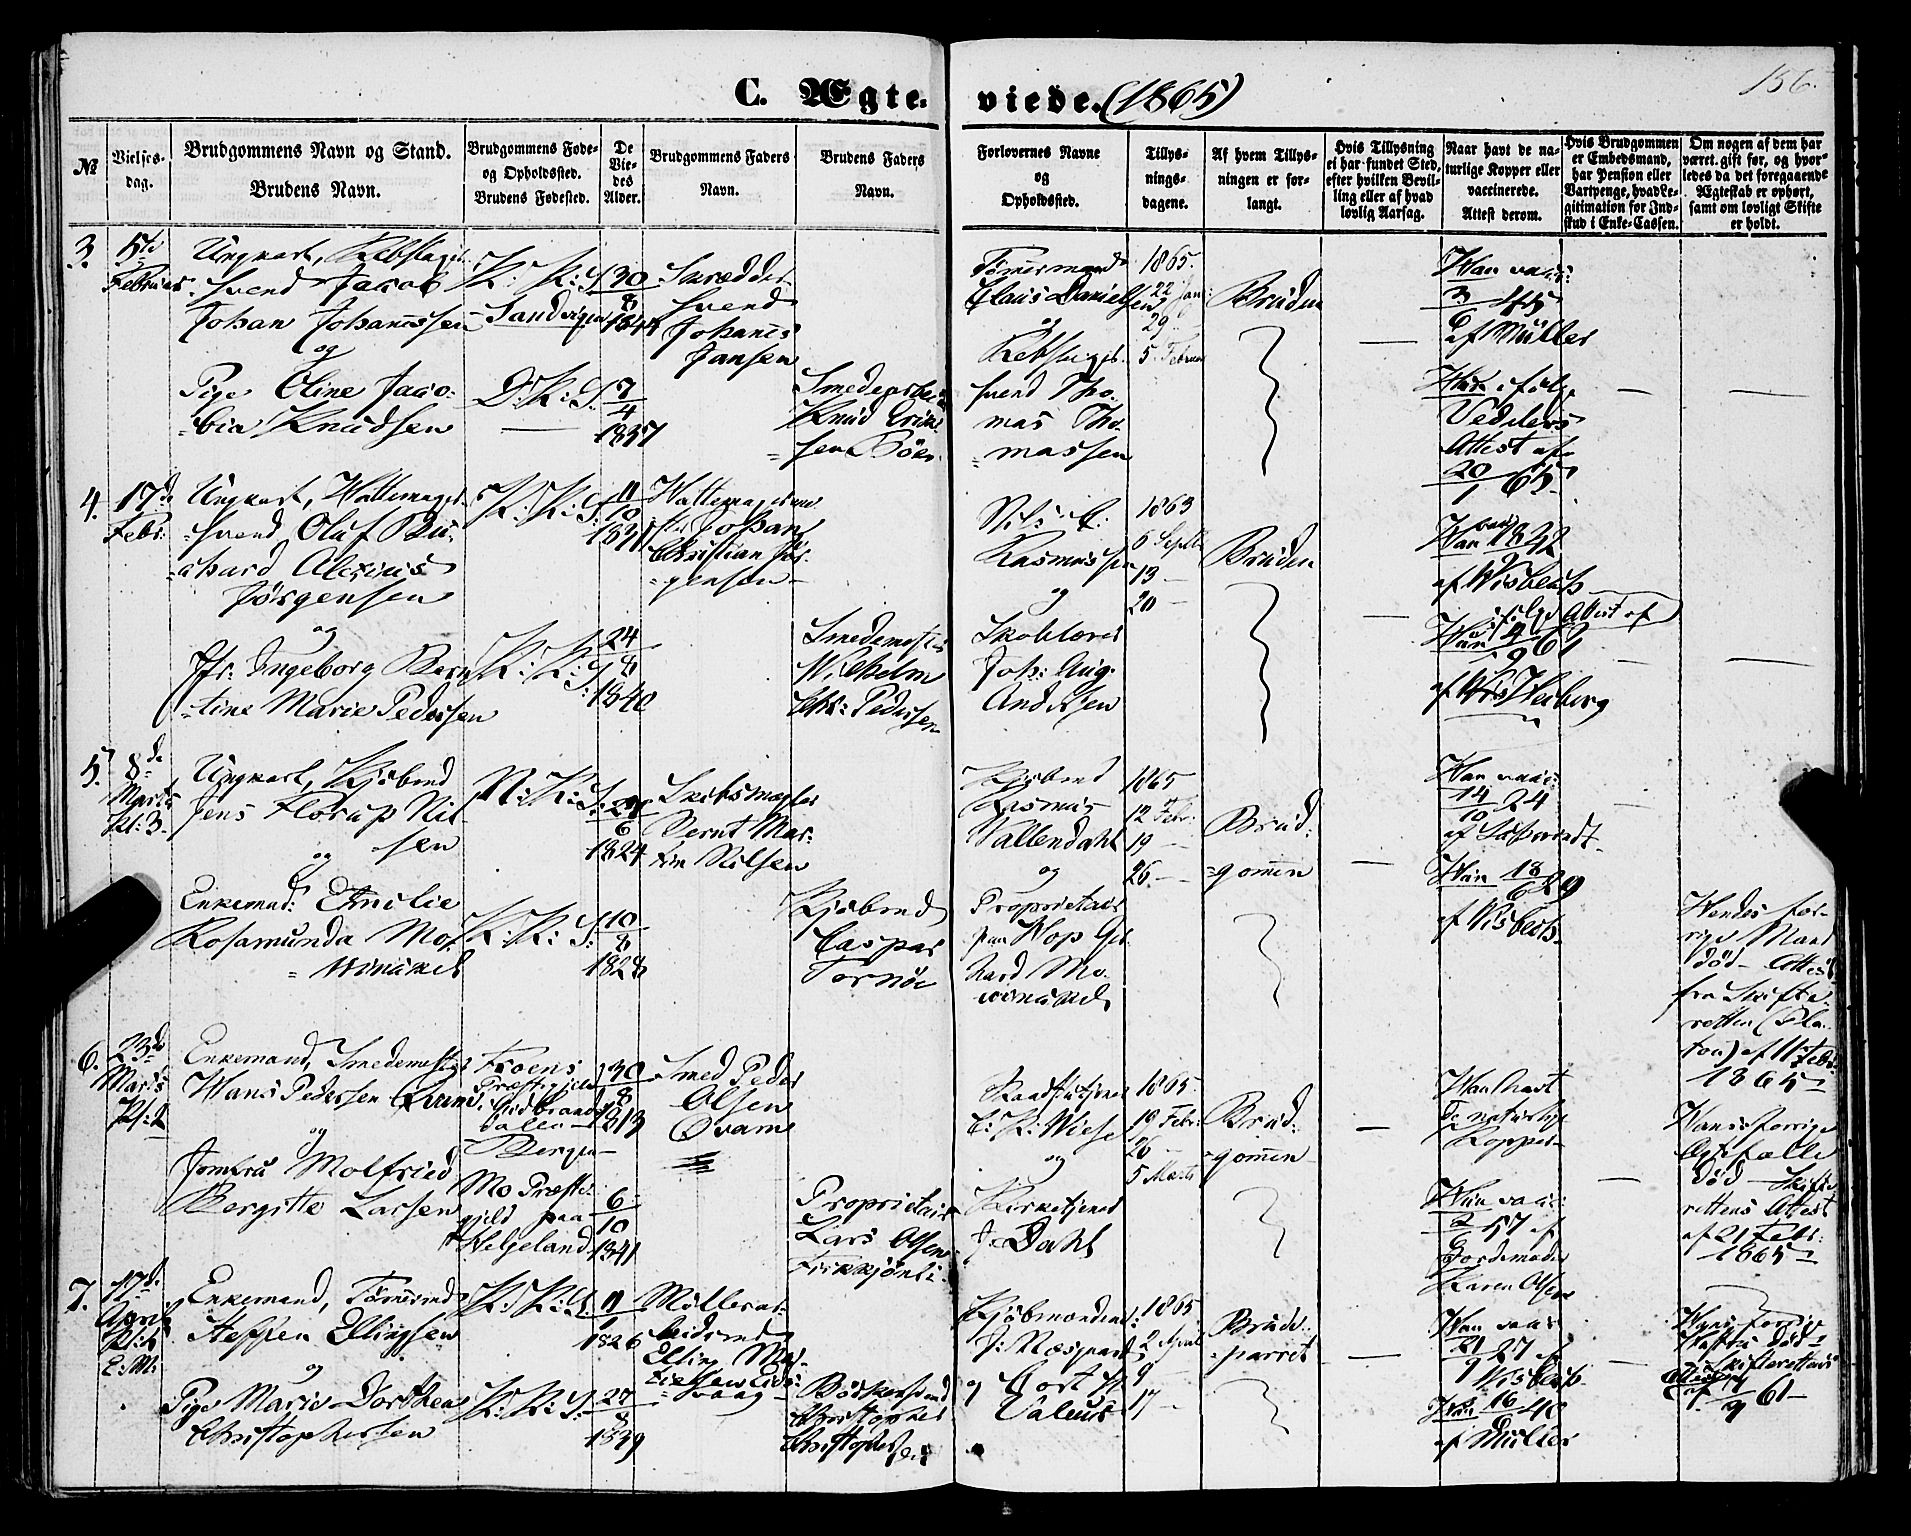 C. Ægte.
viede. (1865)
156.
№
Vielses-
dag.
Brudgommens Navn og Stand.
Brudens Navn.
Brudgommens Føde-
og Opholdssted.
Brudens Fødested.
De
Vie-
des
Alder.
Brudgommens Faders
Navn.
Brudens Faders
Navn.
Forlovernes Navne
og
Opholdssted.
Tillys-
nings-
dagene.
Af hvem Tillys-
ningen er for-
langt.
Hvis Tillysning
ei har fundet Sted,
efter hvilken Bevil-
ling eller af hvad
lovlig Aarsag.
Naar havt de na-
turlige Kopper eller
vaccinerede.
Attest derom.
Hvis Brudgommen
er Embedsmand,
har Pension eller
Vartpenge, hvad Le-
gitimation for Ind-
skud i Enke-Cassen.
Om nogen af dem har
været gift før, og hvor-
ledes da det foregaaende
Ægteskab er ophørt,
samt om lovligt Skifte
er holdt.
3.
5te
Februar
Ungkarl,
Svend Jacob
Johan Johannssen
og
Pige Oline Jaco-
bia Knudsen
K: K: S
Sandvigen
D: K: S.
30
8
1844
7
4
1837
Skrædder
Svend
Johans
Jansen
Knud Erik-
sen Böe
Tømmermand
Claus Daniel-
sen
og
svend Tho-
mas Tho-
massen
1865.
22 Jan:
29
5. Februar
Bruden
Han vacc:
3
6 45
af Müller
Hun ifølge
Vedelers
Attest af
20
1 65
4.
17de
Febr:
Ungkarl,
svend Oluf Ri-
chard Alexius
Jørgensen
og
Jfr: Ingeborg Bern-
tine Marie Pedersen
K: K: S:
K: K: S:
11
10
24
8
1840
Johan
Christian Jør-
gensen
Smedemester
Wilhelm
Chr: Pedersen
Nils C:
Rasmussen
og
Joh: Aug:
Andersen
1863
6 Septbr
13 -
20 -
Bruden
Han 1842
af Wisbech
ifølge Attest af
Hun
af Wiberg
5.
8de
Marts
Kl: 3
Ungkarl, Kjøbmd
Jens Florup Nil-
sen
og
Enkemad: Emilie
Rosamunda Mo-
winckel
N: K: S.
K: K: S:
21
6
1824
10
8
1828
Skibsmægler
Bernt Mar-
tin Nilsen
Kjøbmd
Caspar
Tornöe
Kjøbmd
Rasmus
Wallendahl
og
Proprietair
paa Hop Ger-
hard Mo-
winckel
1865
12 Febr:
19 -
26 -
Brud-
gommen
Han vacc:
14
10 24
Hun 18
6 29
af Wisbech
Hendes for-
rige Mand
død - Attest
fra Skifte-
retten (Pla-
tou) af
1865
6.
23de
Marts
Kl: 2
Enkemand, Smedemester
Hans Pedersen Qvam
og
Jomfru Molfried
Bergitte Larsen
Froens
Præstegjeld
i Gudbrands-
dalen
Bergen
Mo Præste-
gjeld paa
Helgeland
30
8
1813
6
10
1841
Smed Peder
Olsen
Qvam
Proprietair
Lars Olsen
C. K: Wiese
og
Kirketjener
J. Dahl
1865
19 Febr:
26 -
5 Marts
Brud-
gommen
Han havt
de naturlige
Kopper
Hun vacc:
57 af
Jordemoder
Karen Olsen
Hans forrige
Ægtefælle
død - Skifte-
rettens Attest
af 21 Febr:
1865
7.
17de
April
E: M:
Enkemand, Tømmermd
Steffen Ellingsen
og
Pige Marie Dorthea
Christophersen
K: K: S.
K: K: S:
11
1826
27
8
1839
Møllerar-
beidsmd
Elling
Bødkersvend
Christopher
Christophersen
Kjøbmændene:
J: Næsgaard
og Cort H
Valeur
1865
2 April
9
17 -
Brude-
parret
Han vacc
21
9 27 af
Wisbech
Hun 16
40
af Müller
Hans forrige
Hustru død -
Skifterettens
Attest
af 61 -